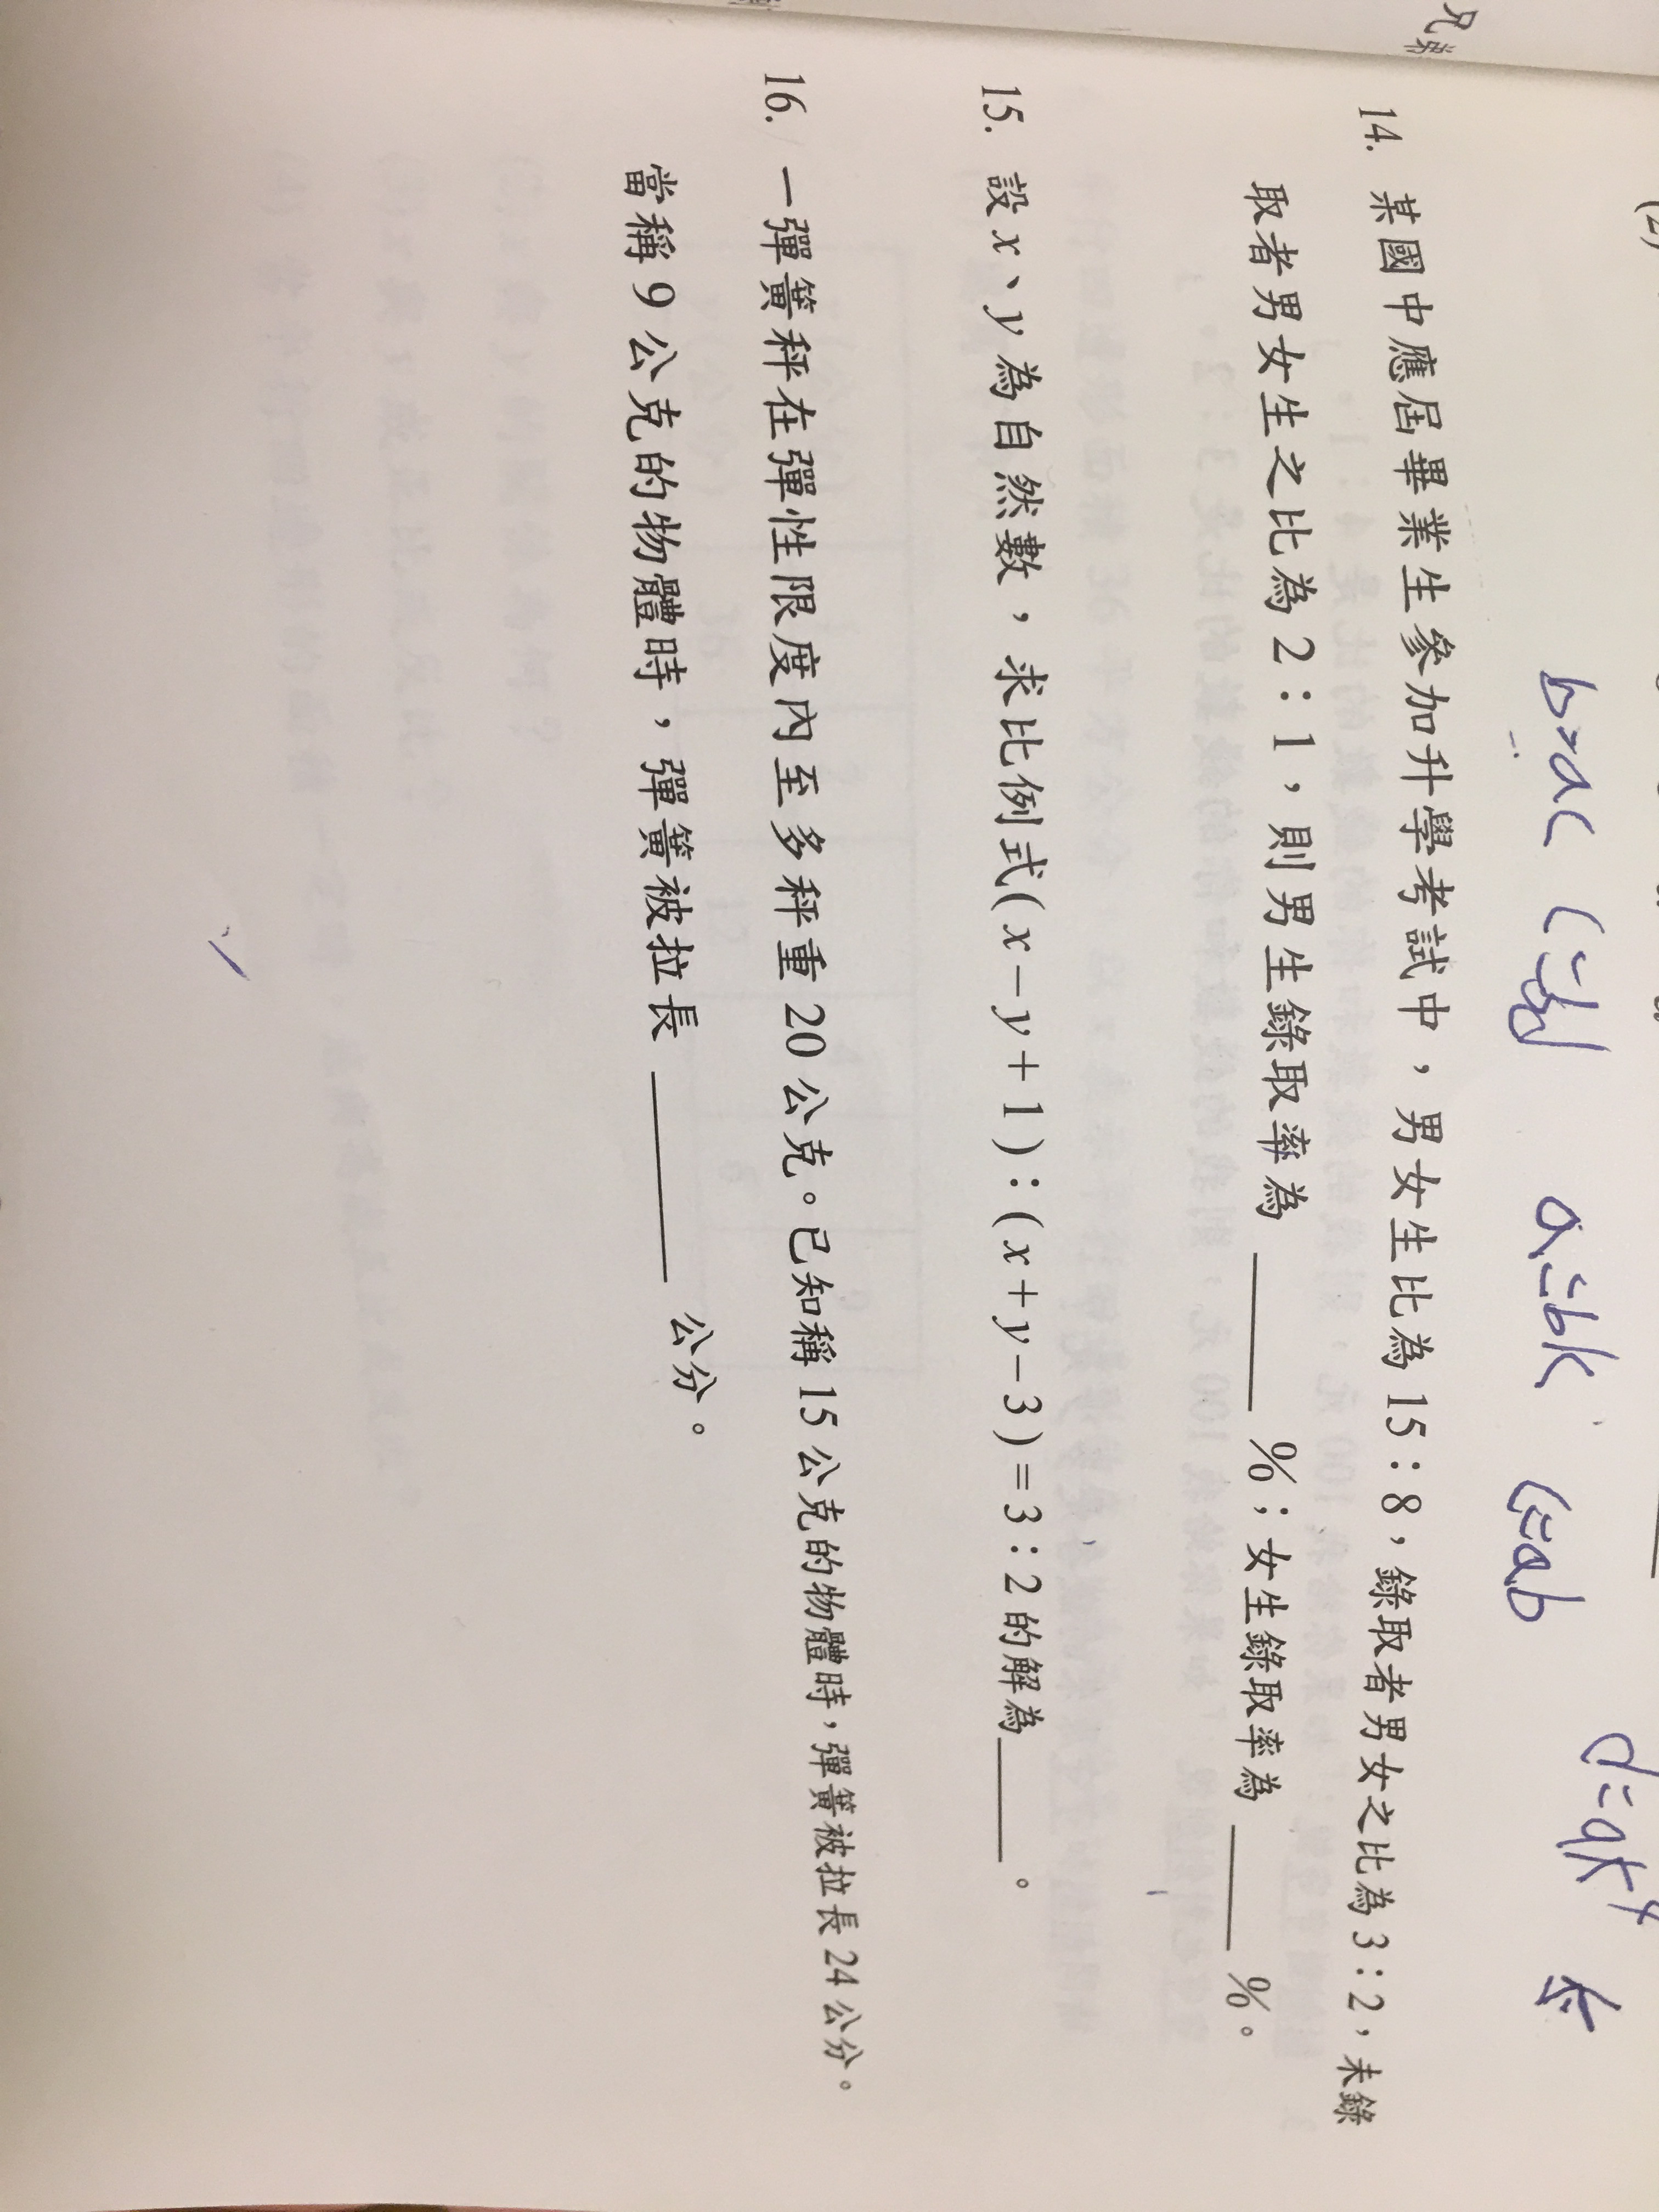 兄弟
(2)
b=ac (=bd a=bk c=ab d=ak⁴
14. 某國中應屆畢業生參加升學考試中，男女生比為15：8，錄取者男女之比為3：2，未錄
取者男女生之比為2：1，則男生錄取率為＿＿＿%；女生錄取率為＿＿＿%。
15. 設x、y為自然數，求比例式(x－y＋1)：(x＋y－3)＝3：2的解為＿＿＿。
16. 一彈簧秤在彈性限度內至多秤重20公克。已知稱15公克的物體時，彈簧被拉長24公分。
當稱9公克的物體時，彈簧被拉長＿＿＿公分。